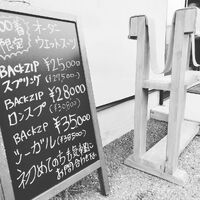 00着 オーダー
限定 ウエットスーツ
BACKZIP ¥25,000
スプリング (¥27500)
BACKZIP ¥28000
ロンスプ (¥30800)
BACKZIP ¥35000
シーガル (¥38500)
初めての方も気軽に
お問合わせを